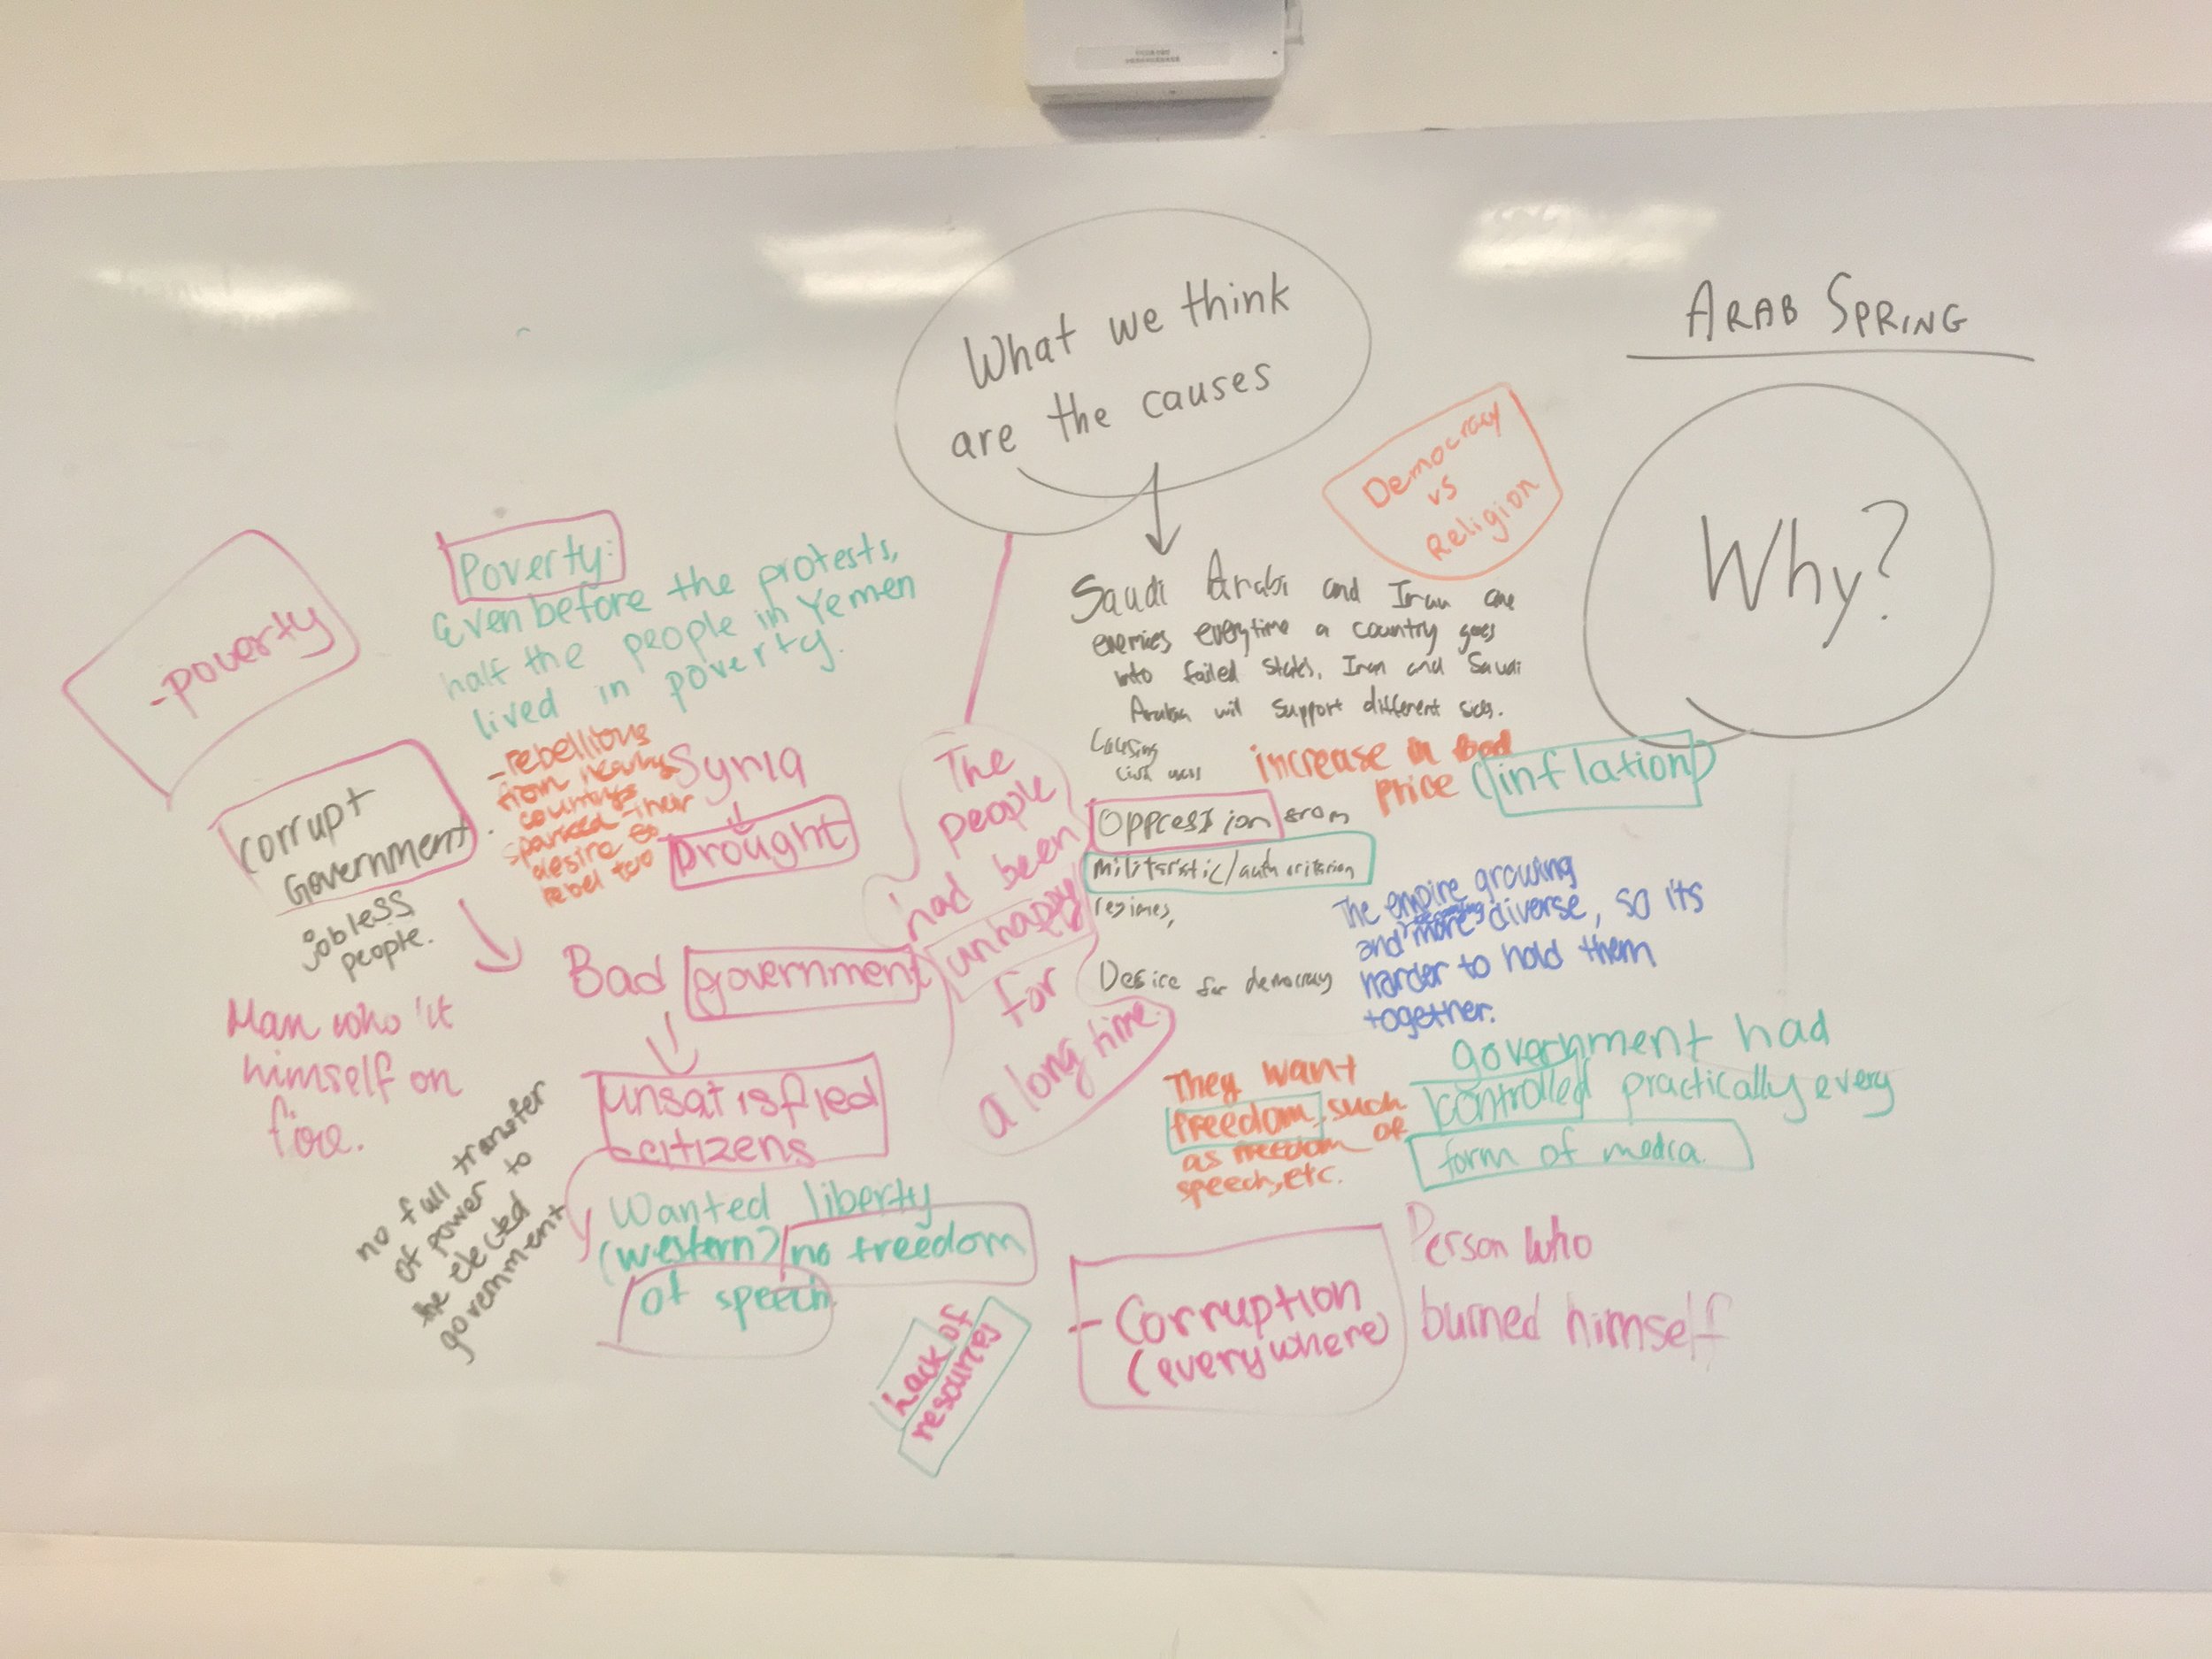 ARAB SPRING
What we think
are the causes
Why?
Democracy
vs
Religion
-poverty
Poverty:
Even before the protests,
half the people in Yemen
lived in poverty.
Saudi Arabi and Iran are
enemies everytime a country goes
into failed states, Iran and Saudi
Arabia will support different sides.
Causing
civil wars
increase in food
price (inflation)
corrupt
Government.
jobless
people.
-rebellions
from nearby
countrys
sparked their
desire to
rebel too
Syria
Drought
The
people
had been
unhappy
for
a long time.
Oppression from
militaristic/authoritarian
regimes,
Desire for democracy
The empire growing
and becoming
more diverse, so its
harder to hold them
together.
Bad government
unsatisfied
citizens
Man who lit
himself on
fire.
no full transfer
of power to
the elected
government
Wanted liberty
(western) no freedom
of speech
They want
freedom, such
as freedom of
speech, etc.
government had
controlled practically every
form of media.
Lack of
resources
- Corruption
(everywhere)
Person who
burned himself